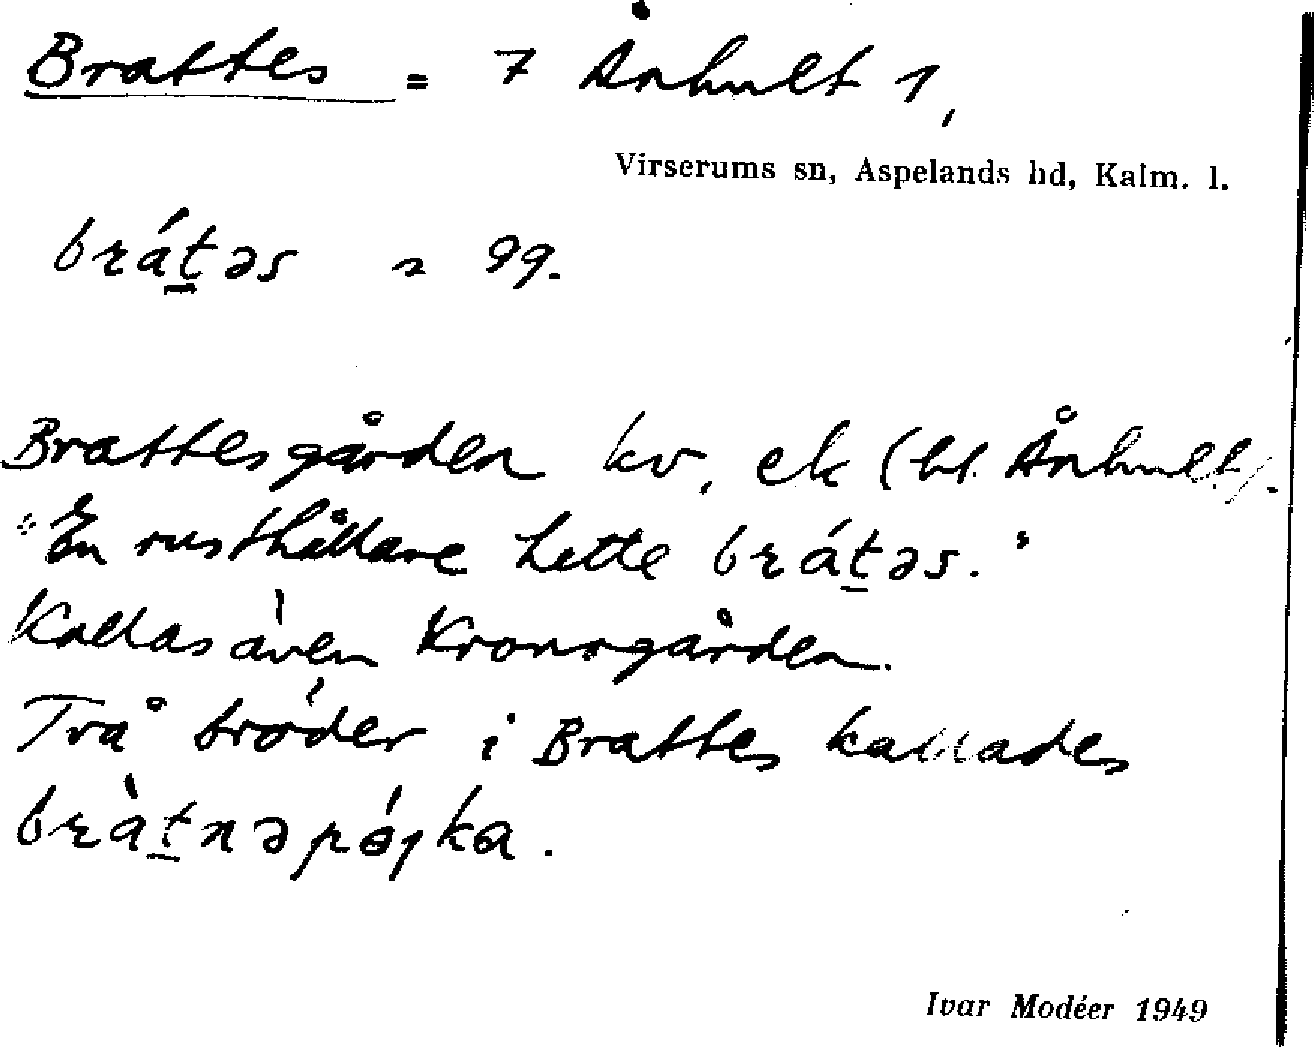 Brattes = 7 Ånhult 1,
Virserums sn, Aspelands hd, Kalm. l.
brát̲əs 99.
Brattesgården kv, ek (bl. Ånhult).
"En rusthållare hette brát̲əs."
Kallas även Kronogården.
Två bröder i Brattes kallades
bràt̲nəpǿjka.
Ivar Modéer 1949